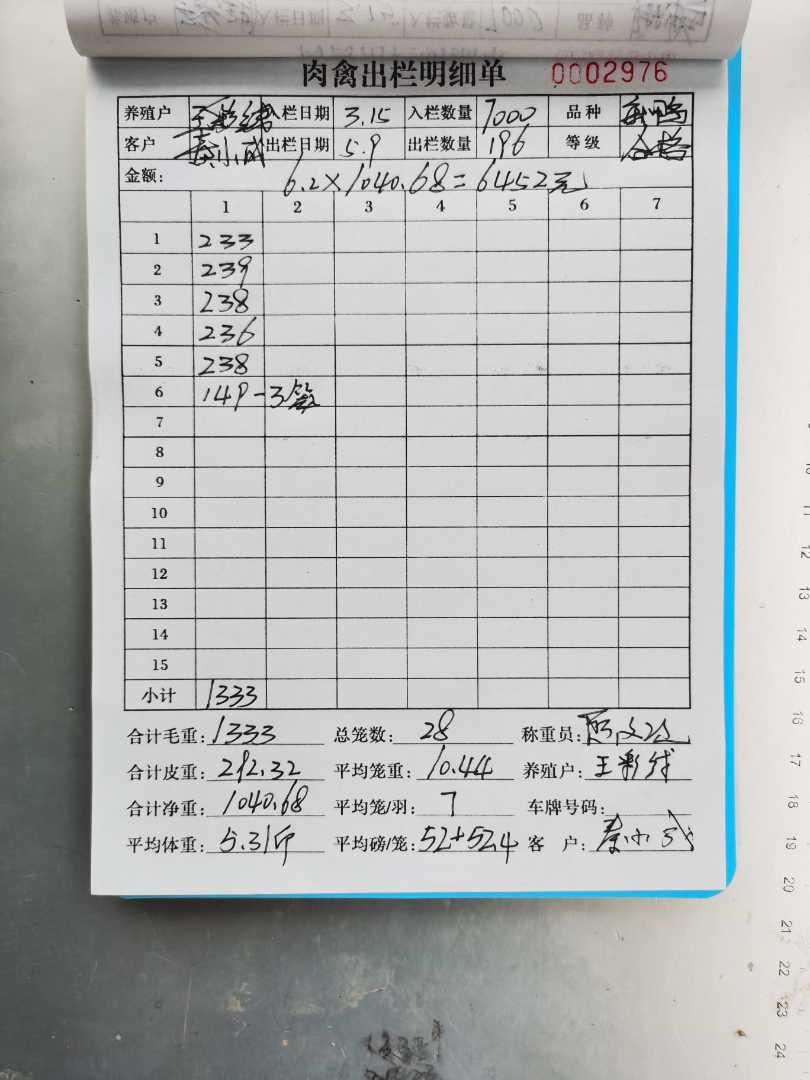 肉禽出栏明细单 0002976
养殖户 入栏日期 3.15 入栏数量 7000 品种
客户 秦小成 出栏日期 5.9 出栏数量 196 等级 合格
金额: 6.2×1040.68=6452元
1 2 3 4 5 6 7
1 233
2 239
3 238
4 236
5 238
6 149-3笼
7
8
9
10
11
12
13
14
15
小计 1333
合计毛重: 1333 总笼数: 28 称重员:
合计皮重: 292.32 平均笼重: 10.44 养殖户: 王彩
合计净重: 1040.68 平均笼/羽: 7 车牌号码:
平均体重: 5.31斤 平均磅/笼: 52+52.4 客户: 秦小成
10
11
12
13
14
15
16
17
18
19
20
21
22
23
24